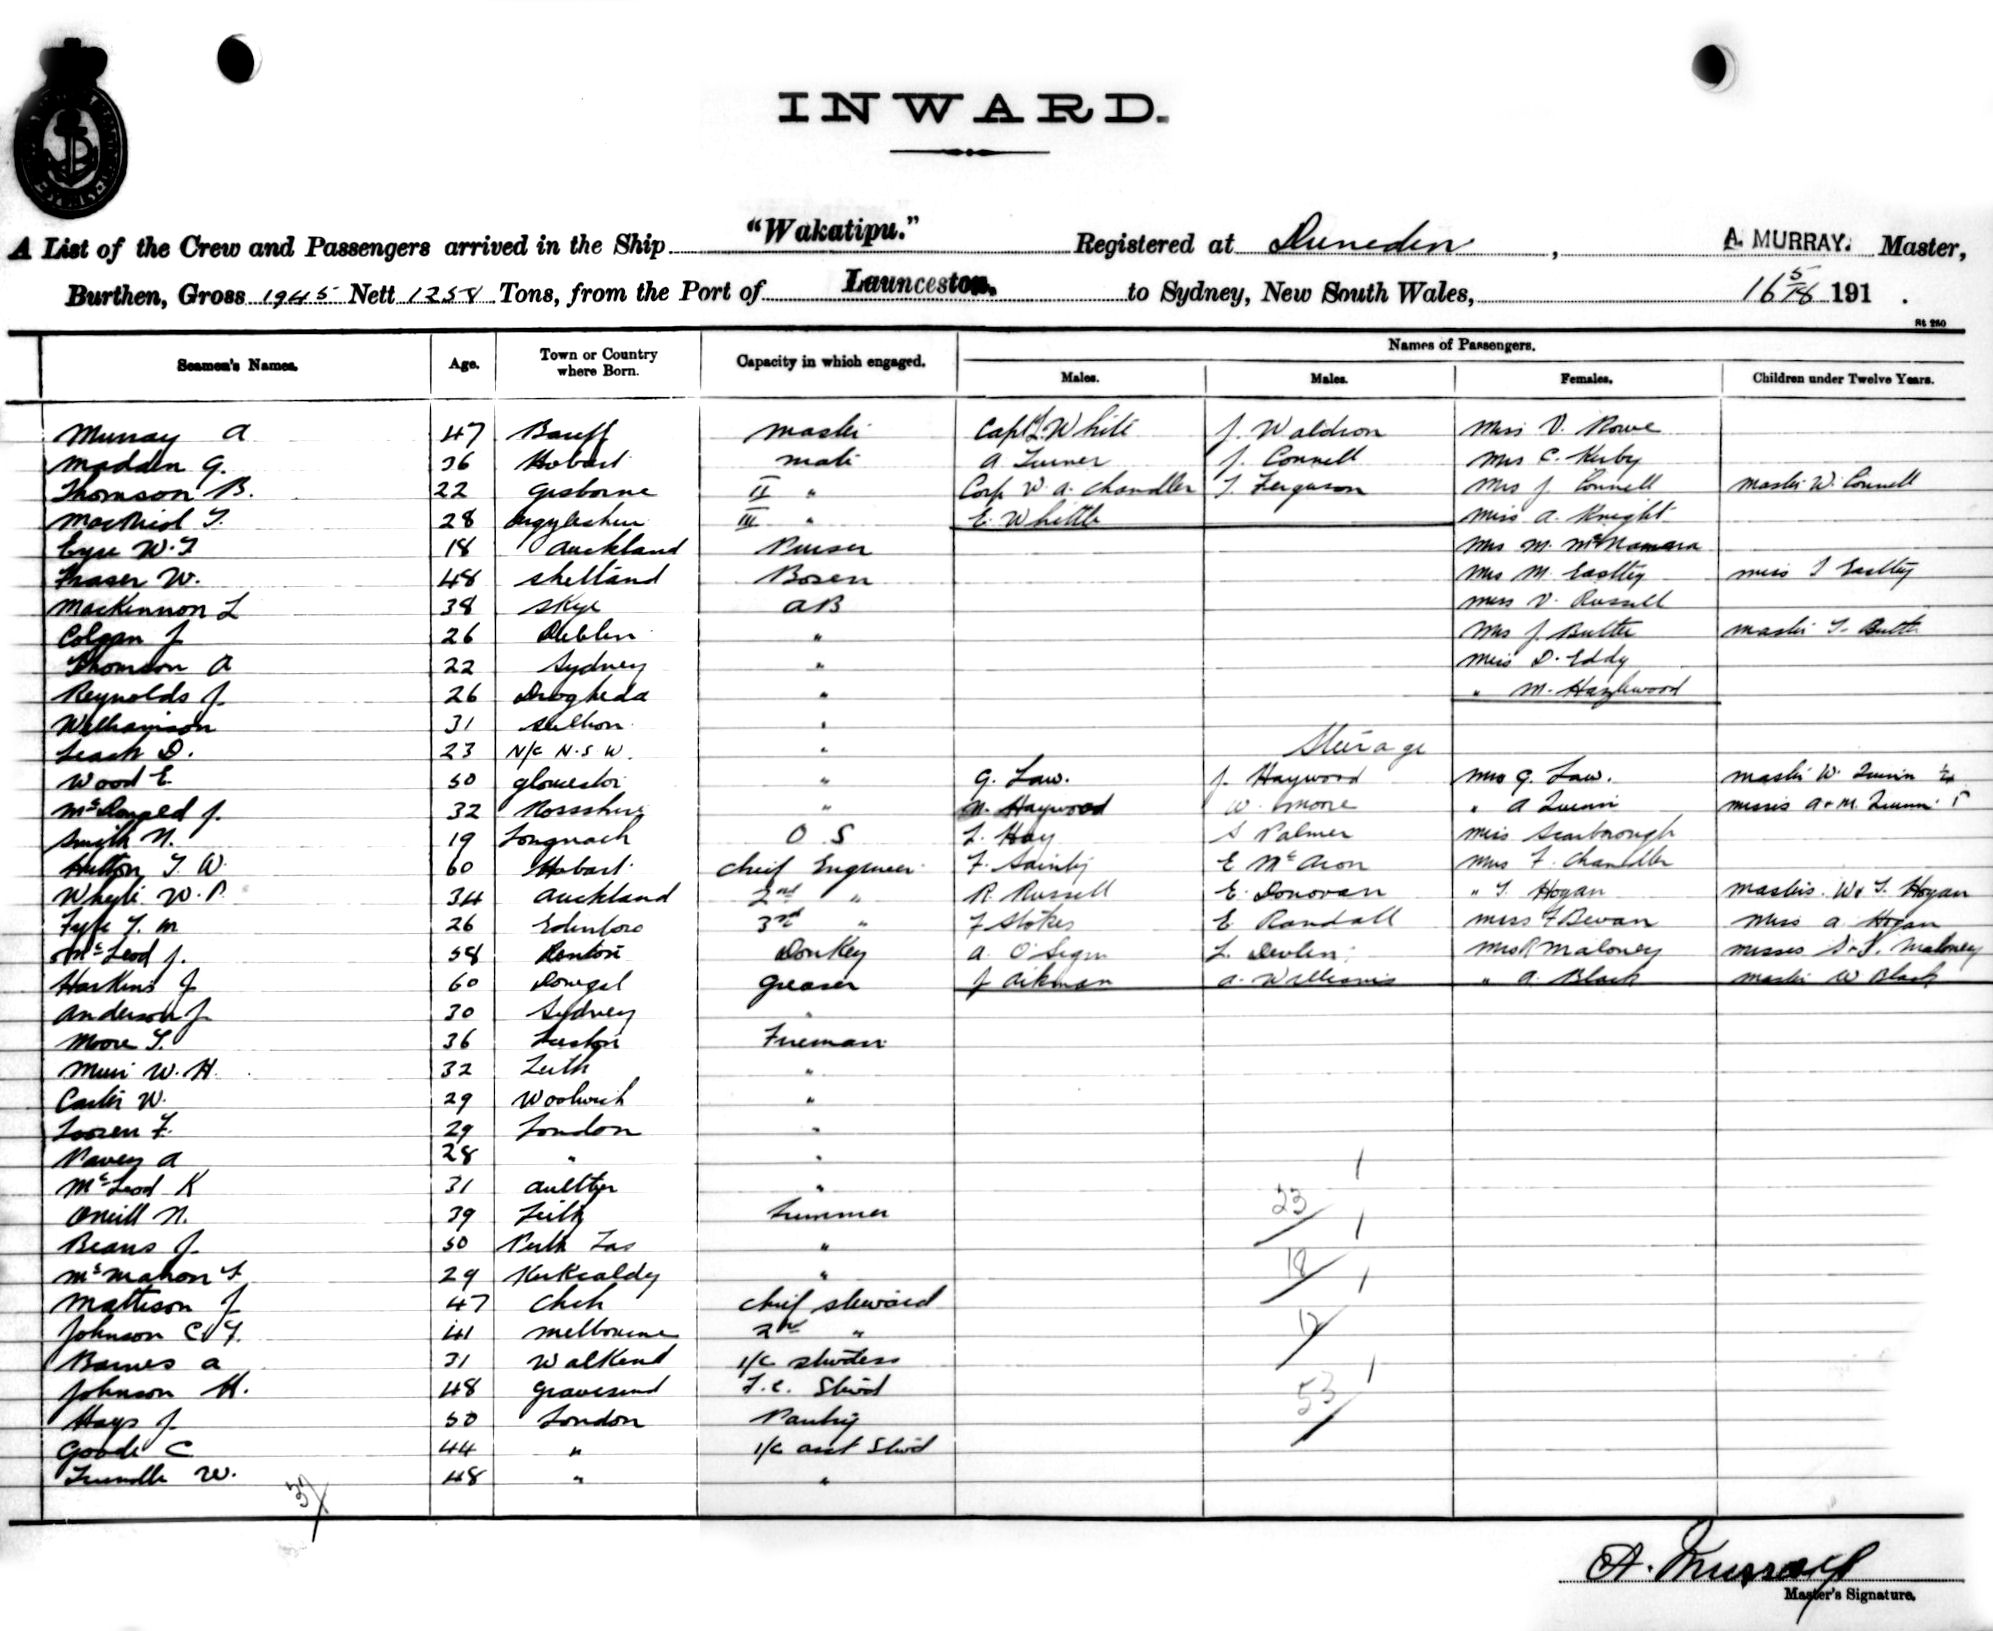 INWARD.
A List of the Crew and Passengers arrived in the Ship "Wakatipu." Registered at Dunedin, A. MURRAY. Master,
Burthen, Gross 1945 Nett 1258 Tons, from the Port of Launceston. to Sydney, New South Wales, 16 5/18 191 .
St 260
Names of Passengers.
Seamen's Names. Age. Town or Country where Born. Capacity in which engaged. Males. Males. Females. Children under Twelve Years.
Murray A 47 Banff Master Capt White J. Waldron Miss V. Rowe
Madden G. 36 Hobart Mate A Turner J. Connell Mrs C. Kirby
Thomson B. 22 Gisborne II " Corp W. A. Chandler T. Ferguson Mrs J. Connell Master W. Connell
28 Argyleshire III " E. Whittle Miss A. Knight
Eyre W. T 18 Auckland Purser Mrs M. McNamara
Fraser W. 48 Shetland Bosen Mrs M. Eastley Miss J Eastley
MacKinnon L 38 Skye AB Miss V. Russell
Colgan J 26 Dublin " Mrs J. Butler Master T. Butler
Thomson A 22 Sydney " Miss D. Eddy
Reynolds J. 26 Drogheda " " M. Hazlewood
Williamson 31 "
Leach D. 23 N/C N.S.W. " Steerage
Wood E. 50 Gloucester " G. Law. J. Haywood Mrs G. Law. Master W. Quinn
McDonald J. 32 Rossshire " Haywood W. Moore " A Quinn Misses A & M. Quinn
Smith N. 19 O S L. Hay S Palmer Miss Scarborough
Hutton T. W 60 Hobart Chief Engineer F. Sainty E Mc Mrs F. Chandler
Whyte W. P 34 Auckland 2nd " R. Russell E. Donovan " T. Hogan Masters W & T. Hogan
Fyfe T. M 26 Edinboro 3rd " F Stokes E Randall Miss F Bevan Miss A Hogan
McLeod J. 58 Donkey A. L. Devlin Mrs R Maloney Misses Maloney
Harkins J 60 Donegal Greaser J Aikman A. Williams " A. Black Master W Black
Anderson J 30 Sydney "
Moore T. 36 Fireman
Muir W. H. 32 Leith "
Carter W. 29 Woolwich "
Loosen F. 29 London "
Pavey A 28 " "
McLeod K 31 "
Oneill N. 39 Leith Trimmer
Beans J 50 Perth Tas "
McMahon T 29 Kirkcaldy "
Mattison J 47 Chch Chief Steward
Johnson C. T. 41 Melbourne 2nd "
Barnes A 31 Walkend 1/C Stwdess
Johnson H. 48 Gravesend F.C. Stwd
Hays J 50 London Pantry
Goode C 44 " 1/C asst Stwd
Trundle W. 48 " "
37
1
23
1
18
1
12
1
53
A. Murray
Master's Signature.